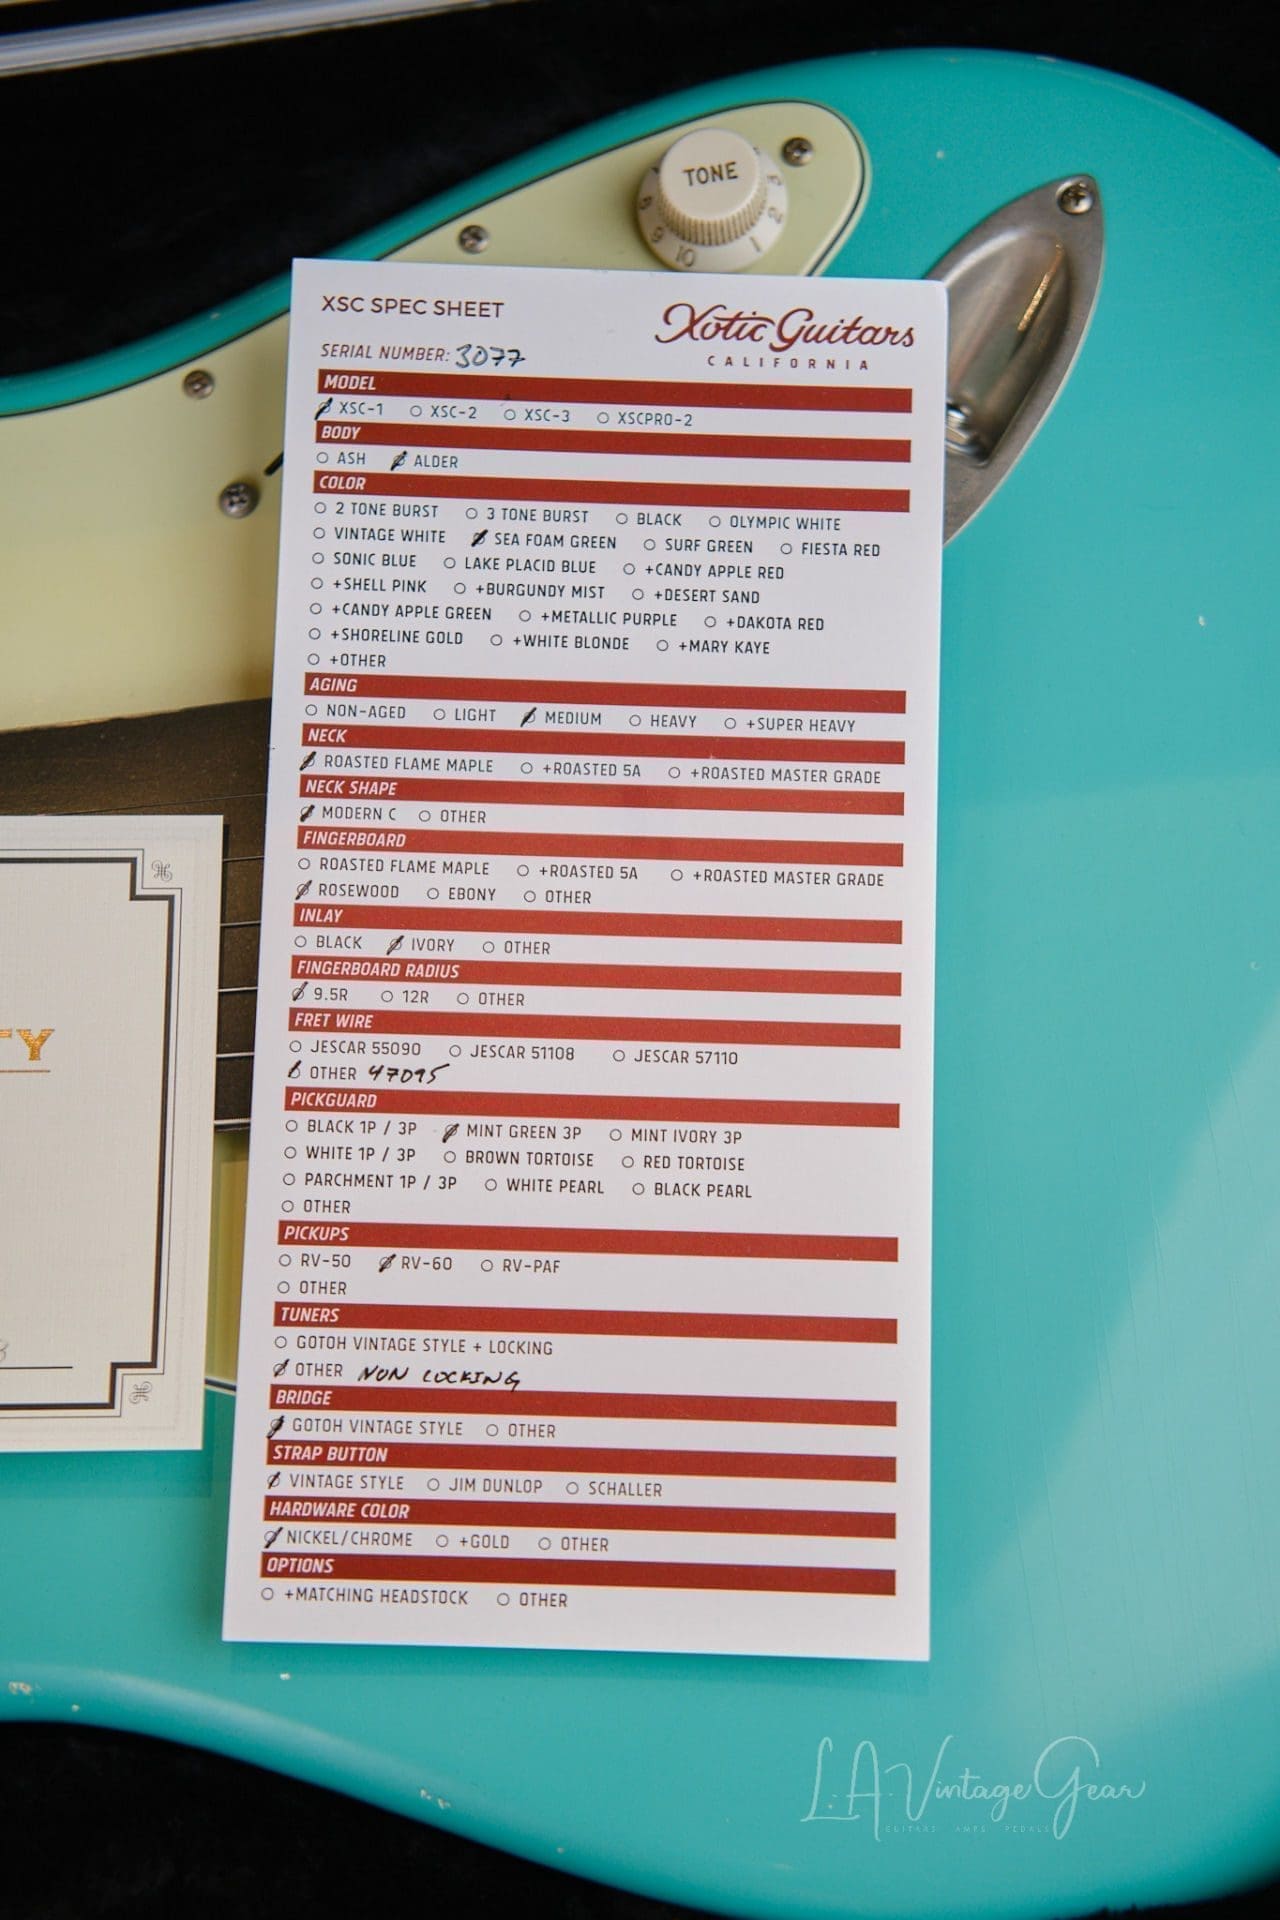 TONE
8 9 10 1 2 3
XSC SPEC SHEET
Xotic Guitars
CALIFORNIA
SERIAL NUMBER: 3077
MODEL
XSC-1 XSC-2 XSC-3 XSCPRO-2
BODY
ASH ALDER
COLOR
2 TONE BURST 3 TONE BURST BLACK OLYMPIC WHITE
VINTAGE WHITE SEA FOAM GREEN SURF GREEN FIESTA RED
SONIC BLUE LAKE PLACID BLUE +CANDY APPLE RED
+SHELL PINK +BURGUNDY MIST +DESERT SAND
+CANDY APPLE GREEN +METALLIC PURPLE +DAKOTA RED
+SHORELINE GOLD +WHITE BLONDE +MARY KAYE
+OTHER
AGING
NON-AGED LIGHT MEDIUM HEAVY +SUPER HEAVY
NECK
ROASTED FLAME MAPLE +ROASTED 5A +ROASTED MASTER GRADE
NECK SHAPE
MODERN C OTHER
FINGERBOARD
ROASTED FLAME MAPLE +ROASTED 5A +ROASTED MASTER GRADE
ROSEWOOD EBONY OTHER
INLAY
BLACK IVORY OTHER
FINGERBOARD RADIUS
9.5R 12R OTHER
FRET WIRE
JESCAR 55090 JESCAR 51108 JESCAR 57110
OTHER 47095
PICKGUARD
BLACK 1P / 3P MINT GREEN 3P MINT IVORY 3P
WHITE 1P / 3P BROWN TORTOISE RED TORTOISE
PARCHMENT 1P / 3P WHITE PEARL BLACK PEARL
OTHER
PICKUPS
RV-50 RV-60 RV-PAF
OTHER
TUNERS
GOTOH VINTAGE STYLE + LOCKING
OTHER NON LOCKING
BRIDGE
GOTOH VINTAGE STYLE OTHER
STRAP BUTTON
VINTAGE STYLE JIM DUNLOP SCHALLER
HARDWARE COLOR
NICKEL/CHROME +GOLD OTHER
OPTIONS
+MATCHING HEADSTOCK OTHER
TY
L.A. Vintage Gear
GUITARS AMPS PEDALS